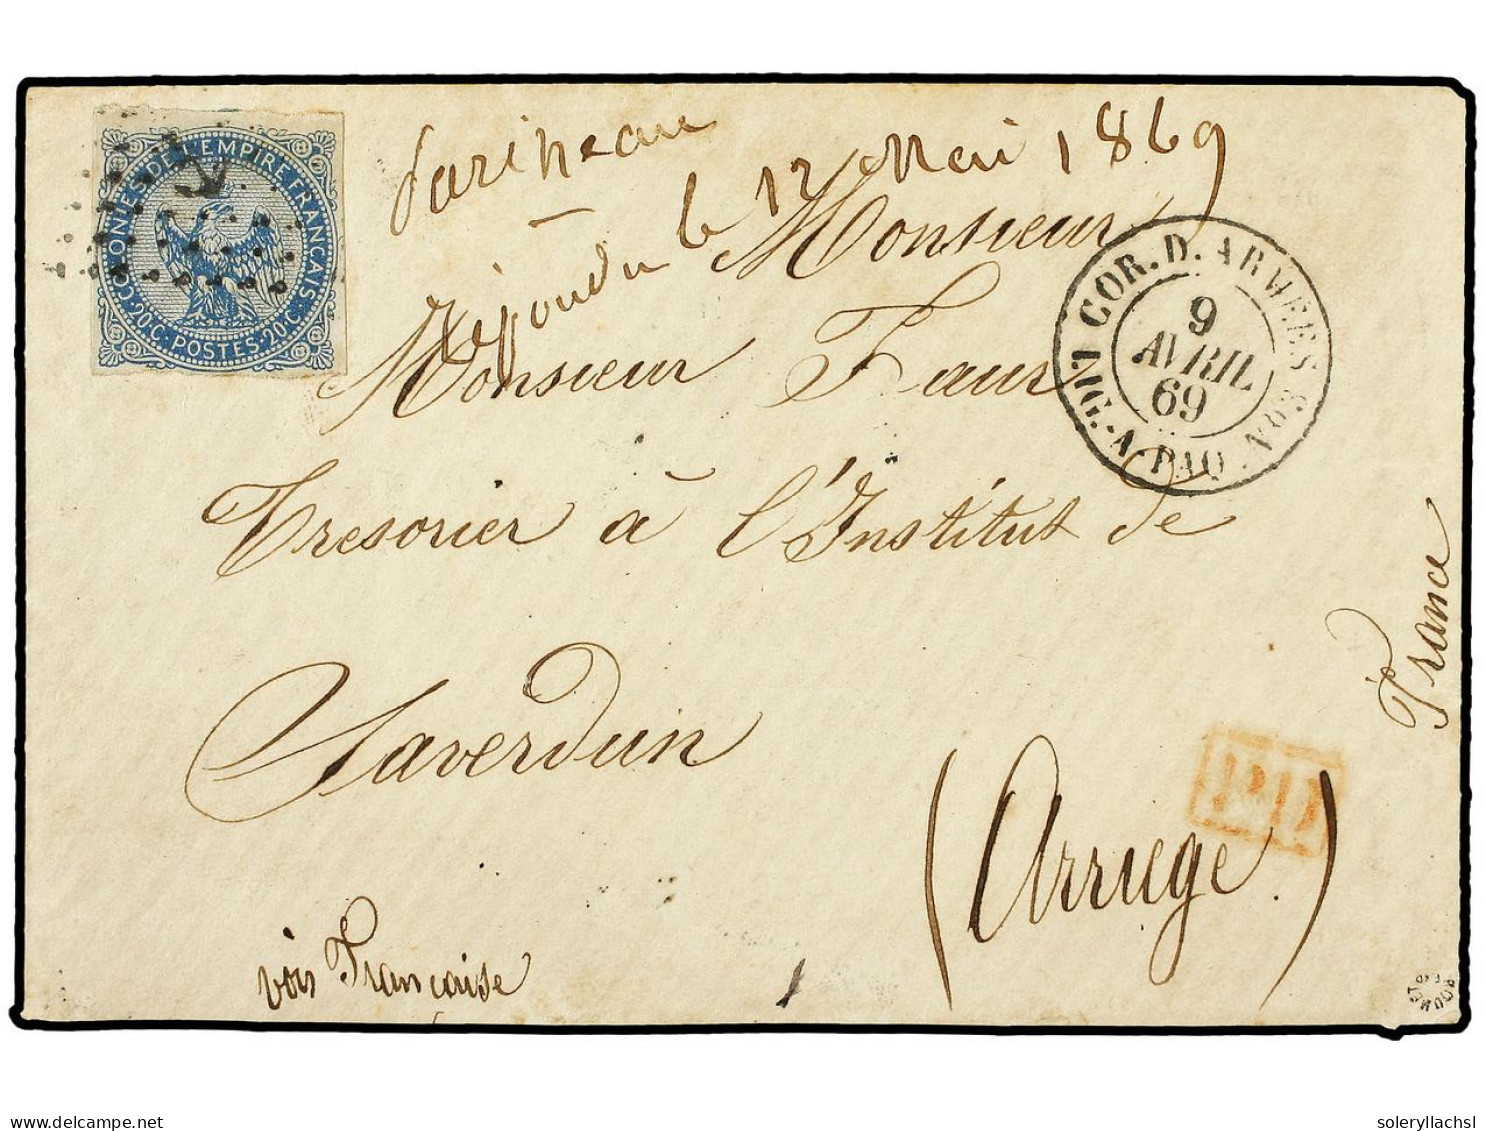 COLONIES DE L'EMPIRE FRANÇAIS
20.C. POSTES. 20.C.
Répondu le 12 Mai 1869
Monsieur
Monsieur Faur
COR. D. ARMEES
LIG. A. PAQ. FR. Nº 8
9
AVRIL
69
Tresorier à l'Institut de
Saverdun
France
P.D
(Arriege)
voie Française
ROUMET
delcampe.net
soleryllachsl